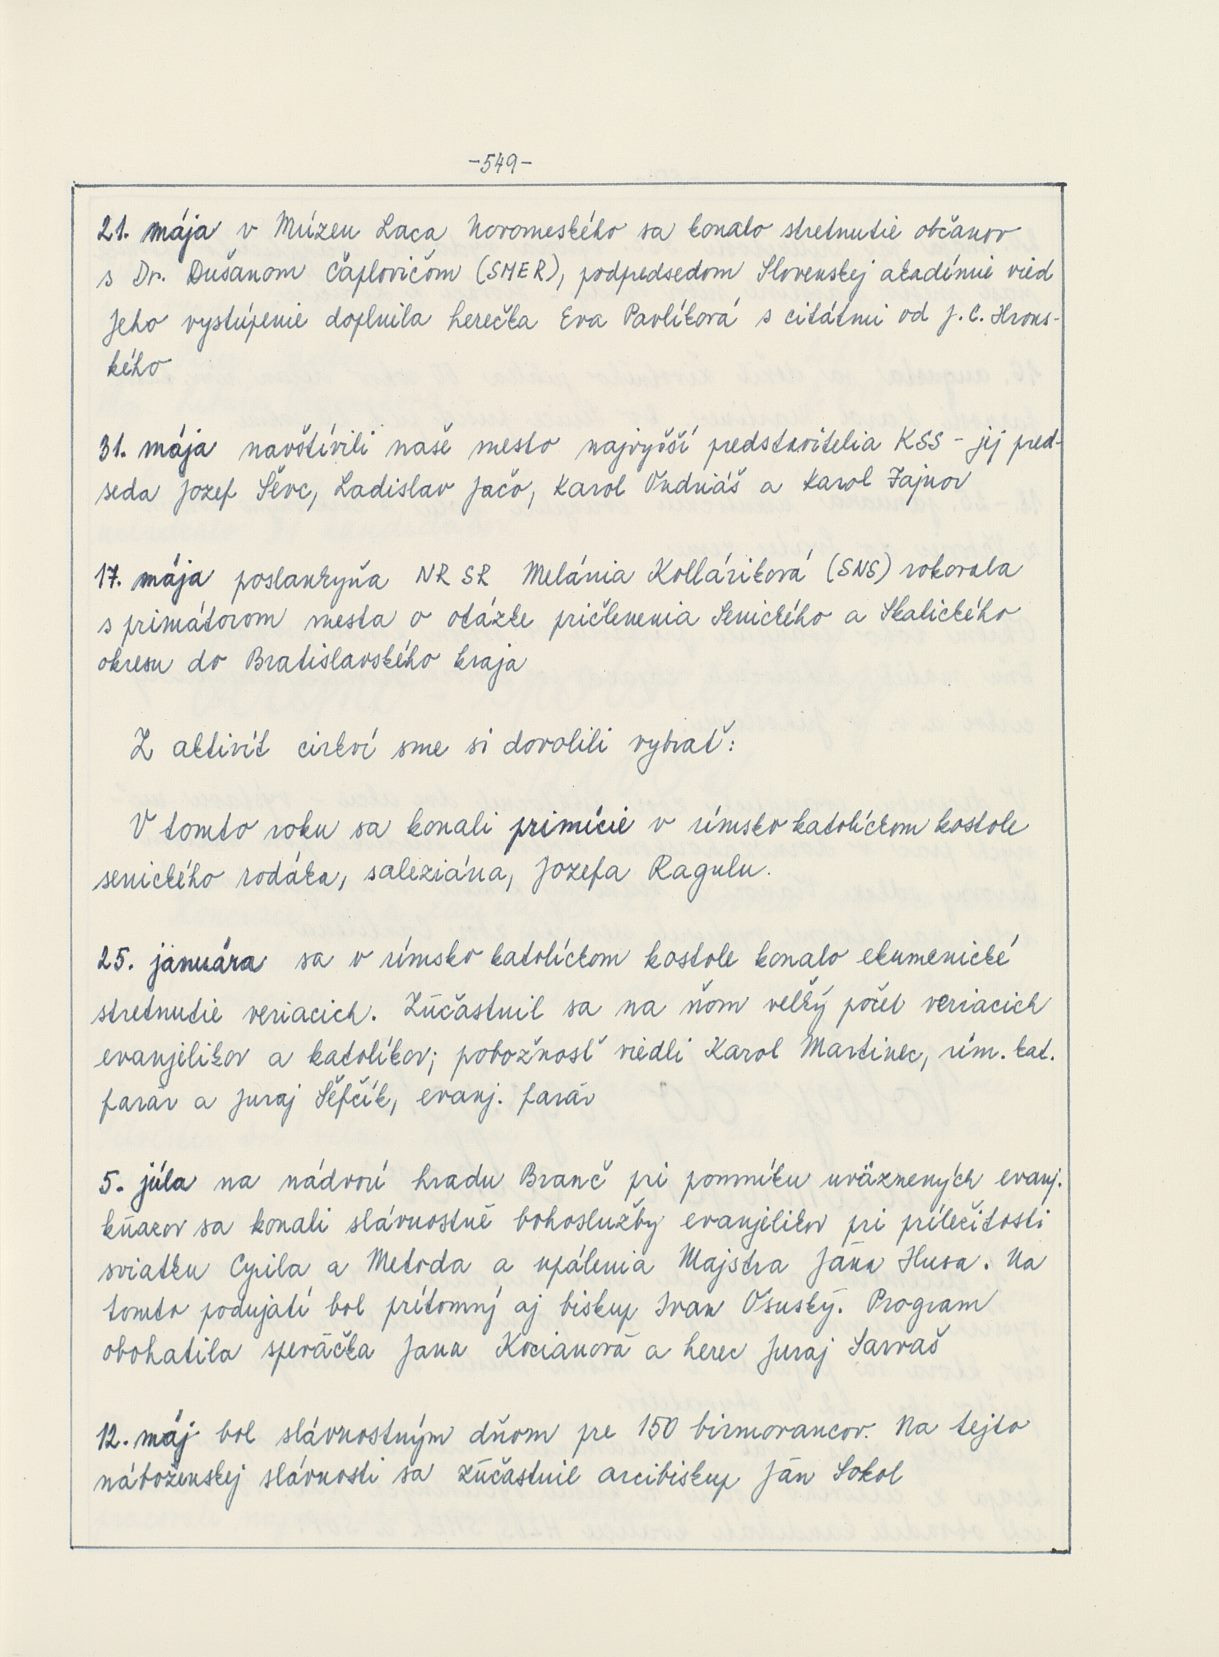 -549-
21. mája v Múzeu Laca Novomeského sa konalo stretnutie občanov
s Dr. Dušanom Čaplovičom (SMER), podpredsedom Slovenskej akadémie vied
Jeho vystúpenie doplnila herečka Eva Pavlíková s citátmi od J. C. Hrons-
kého
31. mája navštívili naše mesto najvyšší predstavitelia KSS - jej pred-
seda Jozef Ševc, Ladislav Jačo, Karol Ondriáš a Karol Fajnor
17. mája poslankyňa NR SR Melánia Kolláriková (SNS) rokovala
s primátorom mesta o otázke pričlenenia Senického a Skalického
okresu do Bratislavského kraja
Z aktivít cirkví sme si dovolili vybrať:
V tomto roku sa konali primície v rímsko katolíckom kostole
senického rodáka, saleziána, Jozefa Ragulu.
25. januára sa v rímsko katolíckom kostole konalo ekumenické
stretnutie veriacich. Zúčastnil sa na ňom veľký počet veriacich
evanjelikov a katolíkov; pobožnosť viedli Karol Martinec, rím. kat.
farár a Juraj Šefčík, evanj. farár
5. júla na nádvorí hradu Branč pri pomníku uväznených evanj.
kňazov sa konali slávnostné bohoslužby evanjelikov pri príležitosti
sviatku Cyrila a Metoda a upálenia Majstra Jána Husa. Na
tomto podujatí bol prítomný aj biskup Ivan Osuský. Program
obohatila speváčka Jana Kocianová a herec Juraj Sarvaš
12. máj bol slávnostným dňom pre 150 birmovancov. Na tejto
náboženskej slávnosti sa zúčastnil arcibiskup Ján Sokol